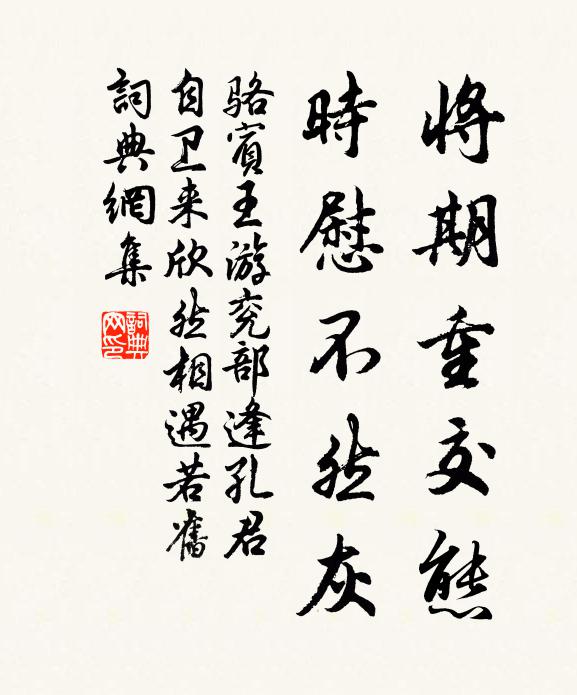 将期重交態
時慰不然灰
骆賓王游兖部逢孔君
自卫来欣然相遇若舊
詞典網集
詞典网印